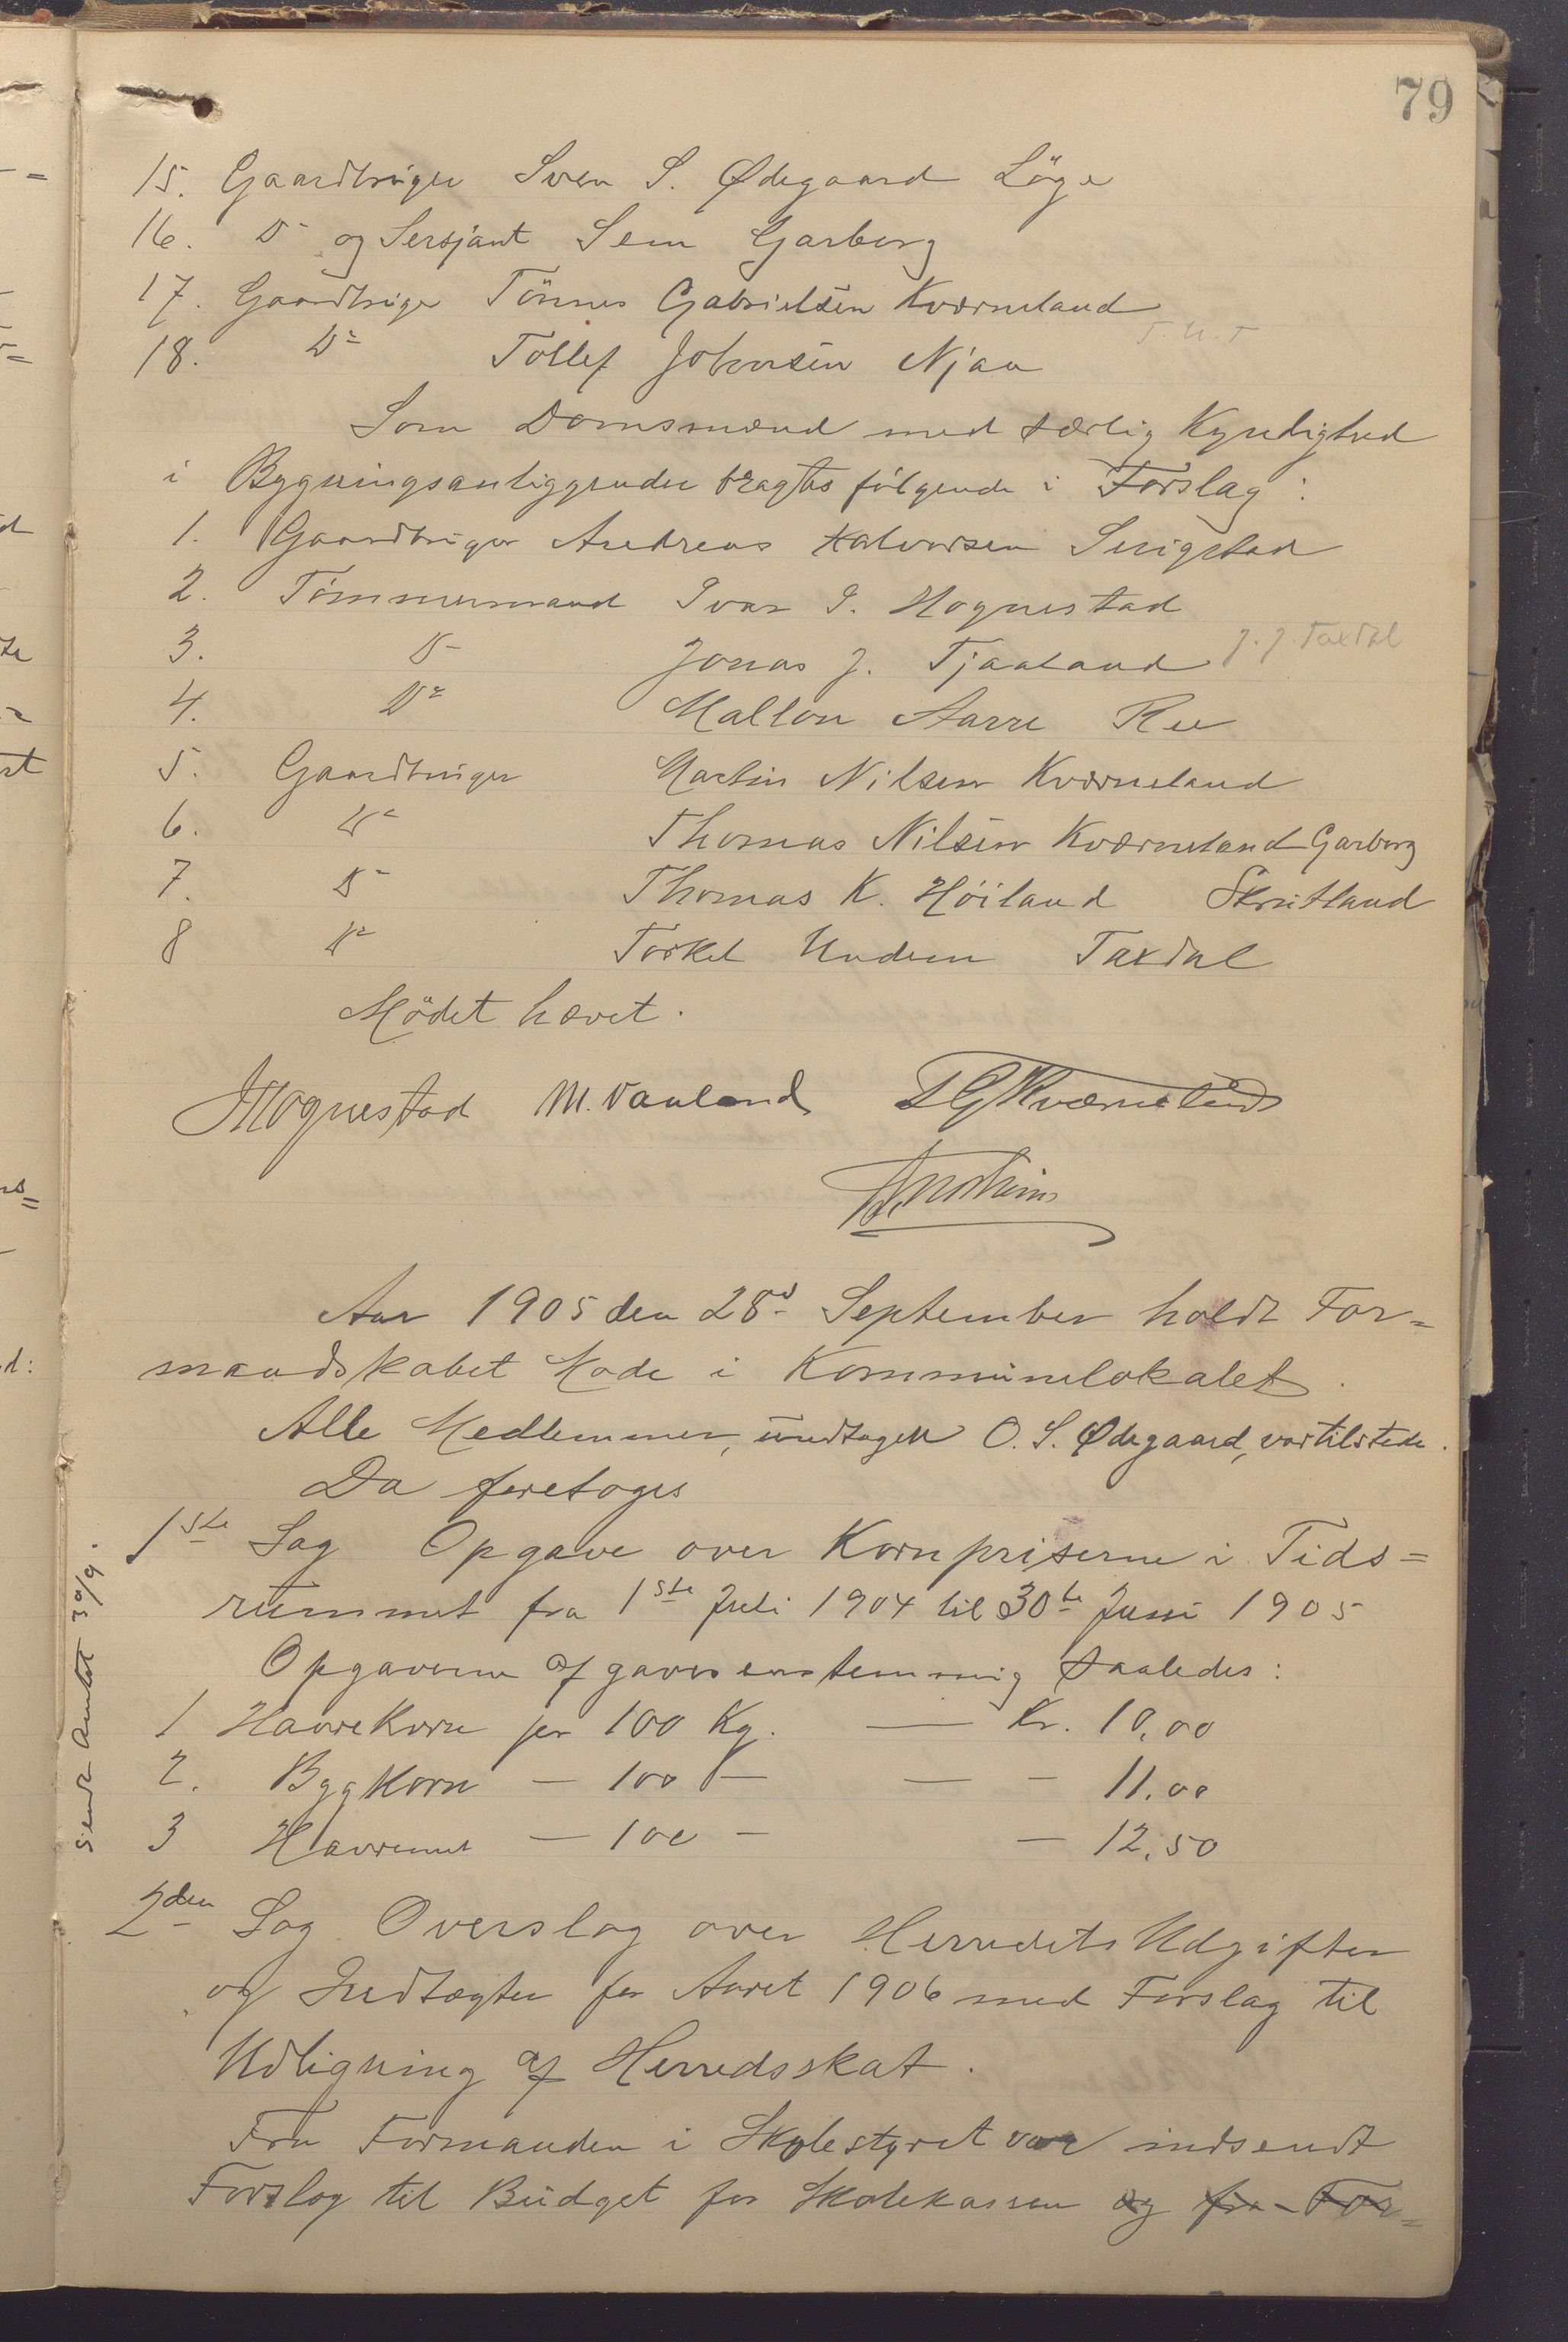 79
15. Gaardbruger Sven S. Ødegaard Löge
16. Do og Sersjant Sem Garborg
17. Gaardbruger Tönnes Gabrielsen Kværneland
18. Do Tollef Johnsen Njaa
Som Domsmænd med særlig Kyndighed
i Bygningsanliggender bragtes følgende i Forslag:
1. Gaardbruger Andreas Halvorsen Serigstad
2. Tömmermand Ivar I. Hognestad
3. Do Jonas J. Tjaaland J. J. Taxdal
4. Do Mallon Aarre Re
5. Gaardbruger Martin Nilsen Kværneland
6. Do Thomas Nilsen Kværneland Garborg
7. Do Thomas K. Höiland Skrutland
8 Do Torkel Undem Taxdal
Mödet hævet.
Hognestad M. Vauland T G Kværneland
Aar 1905 den 28d September holdt For=
mandskabet Möde i Kommunelokalet.
Alle Medlemmer, undtagen O. S. Ødegaard, var tilstede.
Da foretoges
1ste Sag Opgave over Kornpriserne i Tids=
rummet fra 1ste Juli 1904 til 30te Juni 1905
Opgaverne afgaves enstemmig saaledes:
1 Havrekorn per 100 Kg. — Kr. 10,00
2. Bygkorn — 100 — — — 11.00
3 Havremel — 100 — — 12,50
sendt Amtet 30/9.
2den Sag Overslag over Herredets Udgifter
og Indtægter for Aaret 1906 med Forslag til
Udligning af Herredsskat.
Fra Formanden i Skolestyret var indsendt
Forslag til Budget for Skolekassen og fra For=